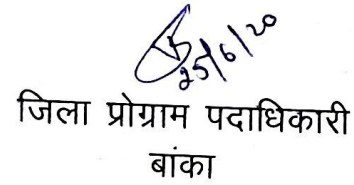 25/6/20
जिला प्रोग्राम पदाधिकारी
बांका